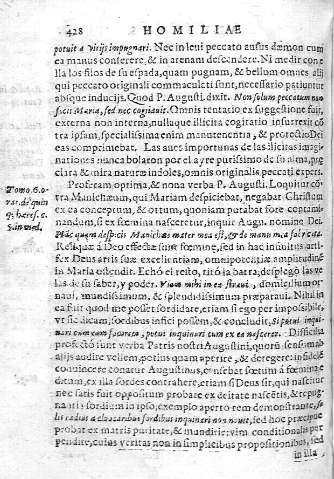 428 HOMILIAE
potuit a vitijs impugnari. Nec in leui peccato ausus dæmon cum
ea manus conferere, & in arenam descendere. Ni medir con e-
lla los filos de su espada, quam pugnam, & bellum omnes alij
qui peccato originali commaculati sunt, necessario patiuntur
absque inducijs. Quod P. Augusti. dixit. Non solum peccatum non
fecit Maria, sed nec cogitauit. Omnis tentatio ex suggestione fuit,
externa non interna, nullaque illicita cogitatio insurrexit
ipsam, specialissima enim manutenentia, & protectio Dei
eas comprimebat. Las aues importunas de las illicitas imagi-
nationes nunca bolaron por el ayre purissimo de su
clara & mira natura indoles, omnis originalis peccati expers.
Proferam optima, & noua verba P. Augusti. Loquitur
Manichæum, qui Mariam despiciebat, negabat Christum
ex ea conceptum, & ortum, quoniam putabat fore contami-
nandum, si ex fœmina nasceretur, inquit Augu. nomine Dei.
Hæc quam despicis Manichæe mater mea est, & de manu mea fabricata.
Reliquæ à Deo effectæ sunt fœminæ, sed in hac insuitus arti-
fex Deus artis suæ excellentiam, omnipotentiæ amplitudinem
in Maria ostendit. Echó el resto, tiró la barra, desplegó las ve-
las de su saber, y poder. Viam mihi in ea straui, domicilium
naui, mundissimum, & splendidissimum præparaui. Nihil in
ea fuit quod me posset sordidare, etiam si ego per impossibile,
vt sic dicam, sordibus infici possem, & concludit, Si potui inqui-
nari cum eam facerem, potui inquinari cum ex ea nascerer. Difficilia
profectò sunt verba Patris nostri Augustini, quorũ sensum
aliis audire vellem, potius quam aperire, & detegere: in
conuincere conatur Augustinus, ex eo
ditam, ex illa sordes contrahere, etiam si Deus sit, qui nascitur
nec satis fuit oppositum probare ex deitate nascẽtis, & repug-
nanti sordium in ipso, exemplo aperto rem demonstrare,
lis radius a cloacarum sordibus inquinari non nouit, sed hoc præcipuè
probat ex matris puritate, & munditie: vim conditionalis per-
pendite, cuius veritas non in simplicibus propositionibus, sed
in illa
Tomo. 6. o-
rat. de quin
q; hæres. c.
5. in med.